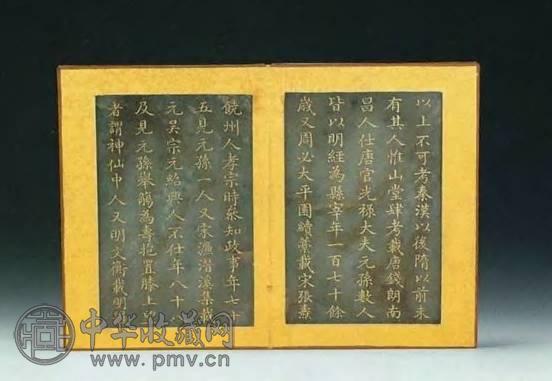 以上不可考秦漢以後隋以前未
有其人惟山堂肆考載唐錢朗南
昌人仕唐官光祿大夫元孫數人
皆以明經為縣宰年一百七十餘
歲又周必大平園續藁載宋張燾
饒州人孝宗時參知政事年七十
五見元孫一人又宋濂潛溪集載
元吳宗元紹興人不仕年八十
及見元孫舉觴為壽抱置膝上
者謂神仙中人又明文衡載明
中华收藏网
www.pmv.cn